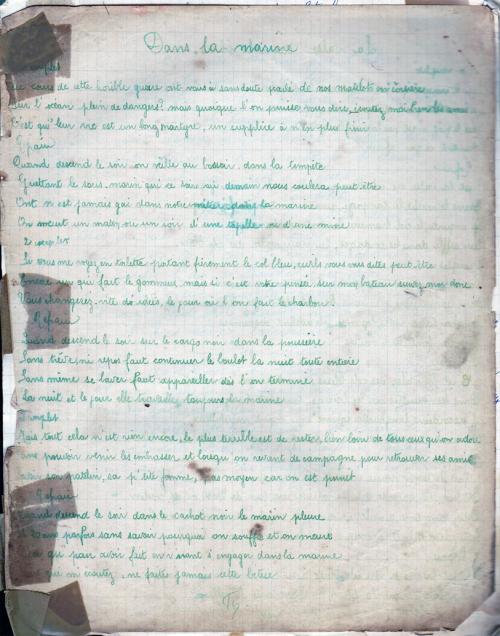 Dans la marine
couplet
Au cours de cette horrible guerre ont vous a sans doute parlé de nos matelots en
Sur l'océan plein de dangers? mais quoique l'on puisse vous dire, écoutez moi bien les
C'est qu' leur vie est un long martyre, un supplice à n'en plus finir
Refrain
Quand descend le soir on veille au bossoir, dans la tempête
Guettant le sous-marin qui ce soir où demain nous coulera peut être
Ont n'est jamais gai dans notre métier dans la marine
On meurt un matin ou un soir d'une ou d'une mine
2 couplet
Si vous me voyez en toilette portant fièrement le col bleu, vous vous dites peut-être
Encore un qui fait le gommeux mais si c'est votre pensée sur mon bateau suivez moi donc
Vous changerez vite d'idées, le jour où l'on fait le charbon.
Refrain
Quand descend le soir sur le cargo noir dans la poussière
Sans trève ni repos faut continuer le boulot la nuit toute entière
Sans même se laver faut appareiller dès l'on termine
La nuit et le jour elle travaille toujours la marine
couplet
Mais tout cela n'est rien encore, le plus terrible est de rester bien loin de tous ceux qu'on adore
sans pouvoir venir les embrasser et lorsqu'on revient de campagne pour retrouver ses amis
son patelin, sa p'tite femme, pas moyen car on est puni
Refrain
Quand descend le soir dans le cachot noir le marin pleure
parfois sans savoir pourquoi on souffre et on meurt
qu' pour avoir fait en s'engager dans la marine
qui m'écoutez, ne faites jamais cette bêtise